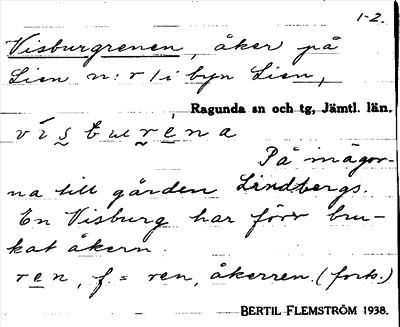 1-2.
Visburgrenen, åker på
Lien n:r 1 i byn Lien,
Ragunda sn och tg, Jämtl. län.
På inägor-
na till gården Lindbergs.
En Visburg har förr bru-
kat åkern.
ren, f. = ren, åkerren. (forts.)
BERTIL FLEMSTRÖM 1938.